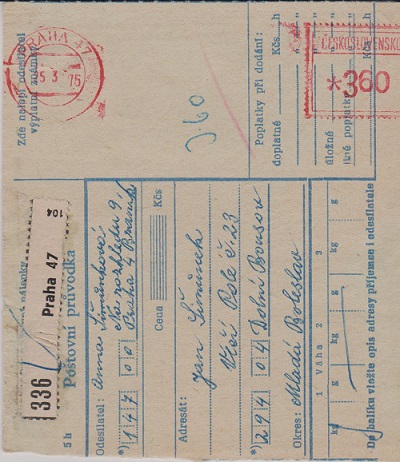 PRAHA 47
5.3.75
Zde nalepí odesílatel
výplatní známky
3.60
Poplatky při dodání:
doplatné Kčs h
úložné " "
jiné poplatky " "
ČESKOSLOVENSKO
*360
104
Praha 47
336
nálepky
5 h Poštovní průvodka
Odesílatel: Anna Šimůnková
Na rozhledu 9,
*) 147 00 Praha 4 Braník
Cena Kčs
Adresát: Jan Šimůnek
Vlčí Pole č. 23
*) 294 04 Dolní Bousov
Okres: Mladá Boleslav
1 Váha 2 3
kg g kg g kg g
Do balíku vložte opis adresy příjemce i odesílatele